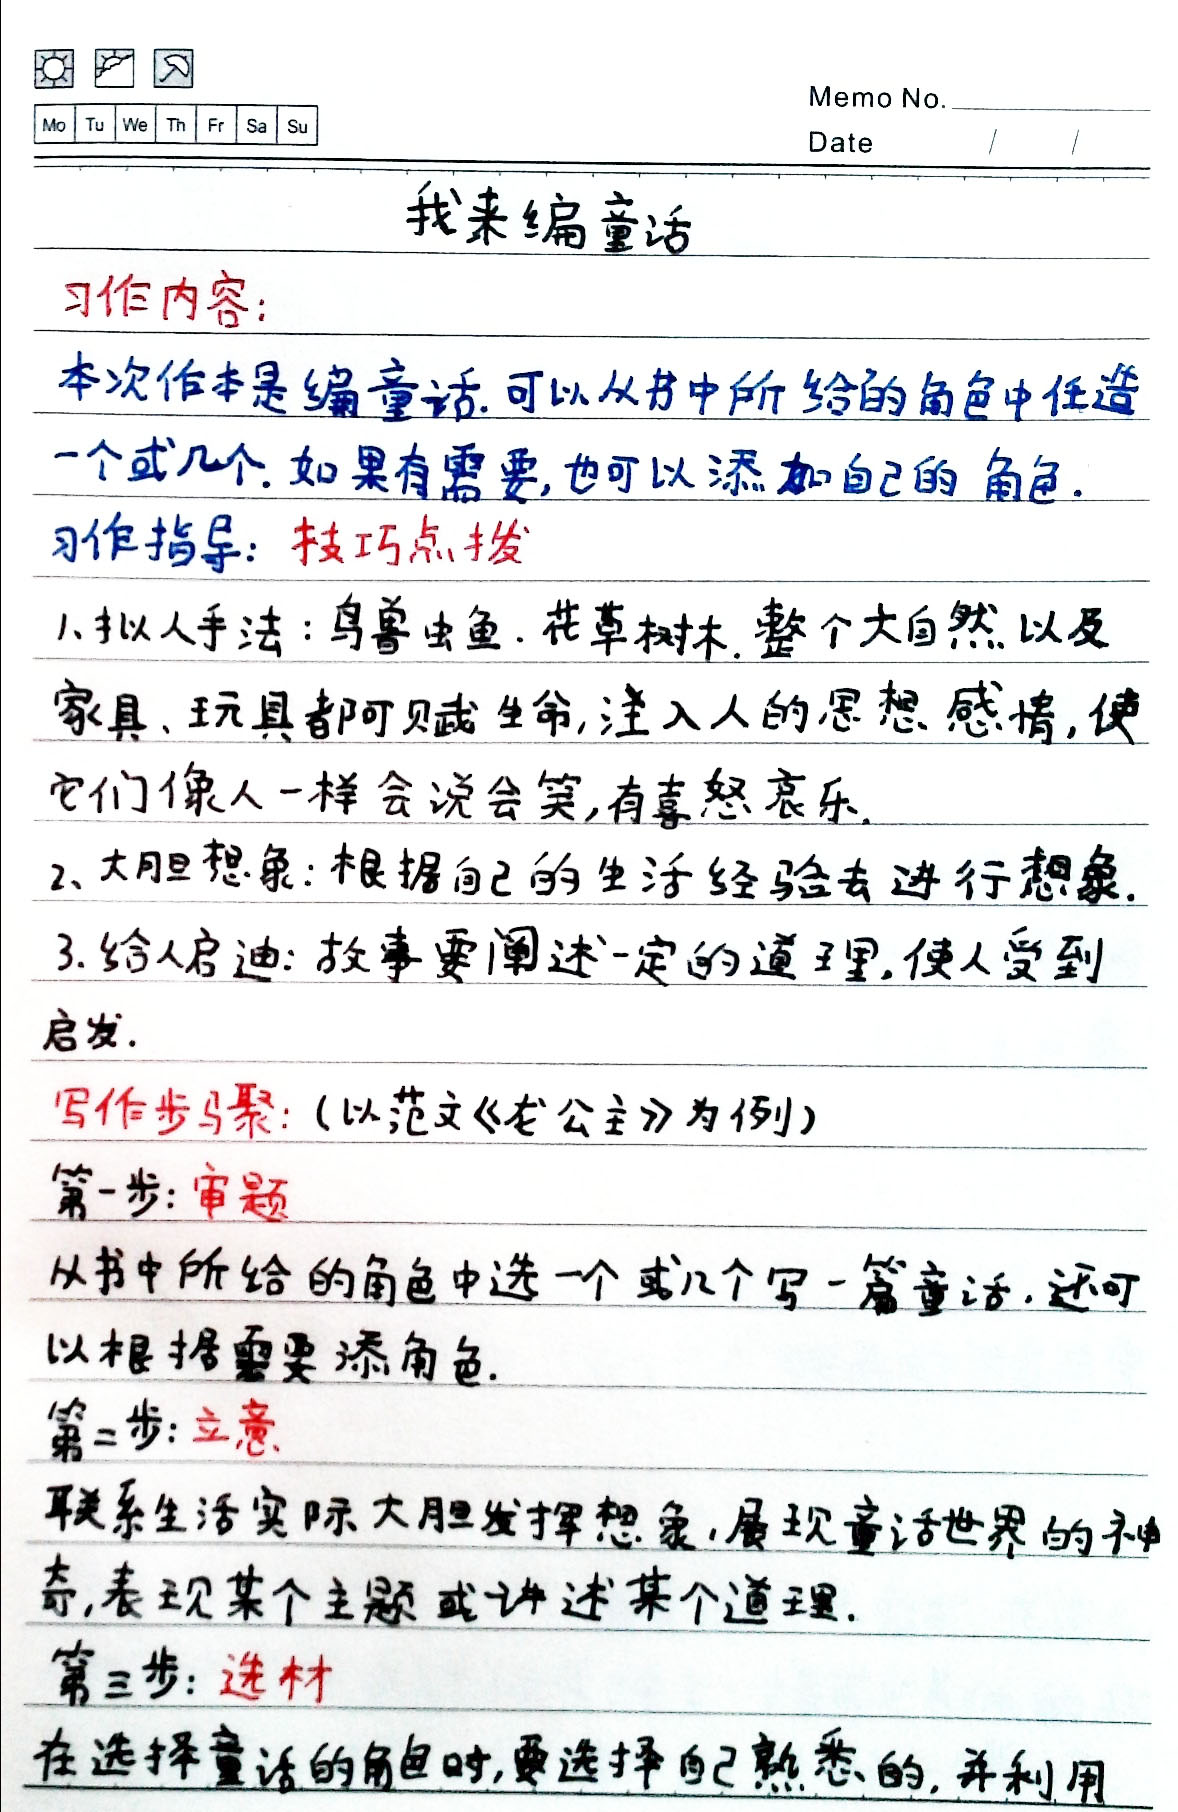 Memo No.
Mo Tu We Th Fr Sa Su
Date / /
我来编童话
习作内容:
本次作本是编童话.可以从书中所给的角色中任造
一个或几个.如果有需要,也可以添加自己的角色.
习作指导: 技巧点拨
1、拟人手法:鸟兽虫鱼.花草树木.整个大自然以及
家具、玩具都阿赋生命,注入人的思想感情,使
它们像人一样会说会笑,有喜怒哀乐.
2、大胆想象:根据自己的生活经验去进行想象.
3.给人启迪:故事要阐述一定的道理,使人受到
启发.
写作步骤:(以范文《龙公主》为例)
第一步:审题
从书中所给的角色中选一个或几个写一篇童话.还可
以根据需要添角色.
第二步:立意
联系生活实际大胆发挥想象,展现童话世界的神
奇,表现某个主题或讲述某个道理.
第三步:选材
在选择童话的角色时,要选择自己熟悉的,并利用